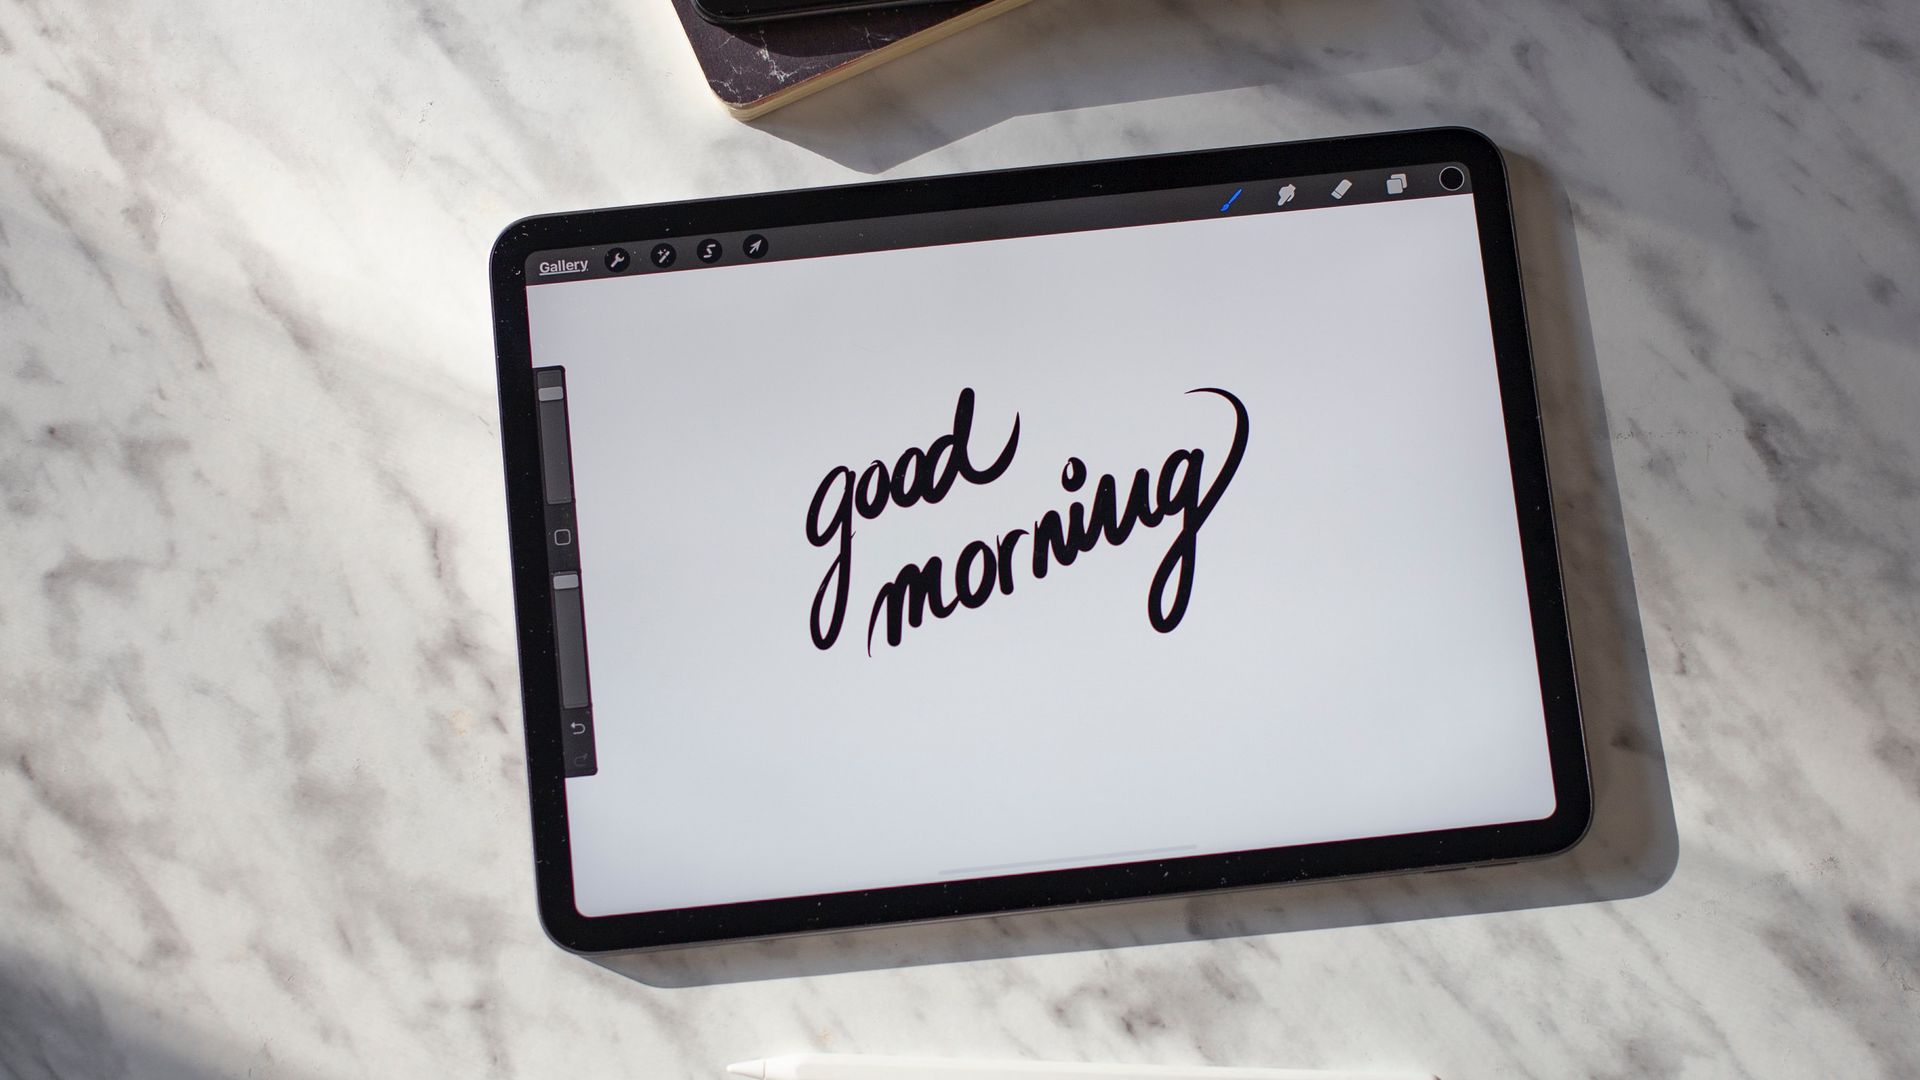 Gallery
good
morning